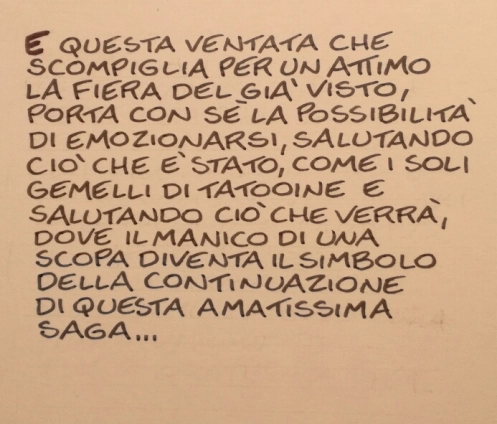 E QUESTA VENTATA CHE
SCOMPIGLIA PER UN ATTIMO
LA FIERA DEL GIA' VISTO,
PORTA CON SÈ LA POSSIBILITA'
DI EMOZIONARSI, SALUTANDO
CIO' CHE E' STATO, COME I SOLI
GEMELLI DI TATOOINE E
SALUTANDO CIO' CHE VERRÀ,
DOVE IL MANICO DI UNA
SCOPA DIVENTA IL SIMBOLO
DELLA CONTINUAZIONE
DI QUESTA AMATISSIMA
SAGA...